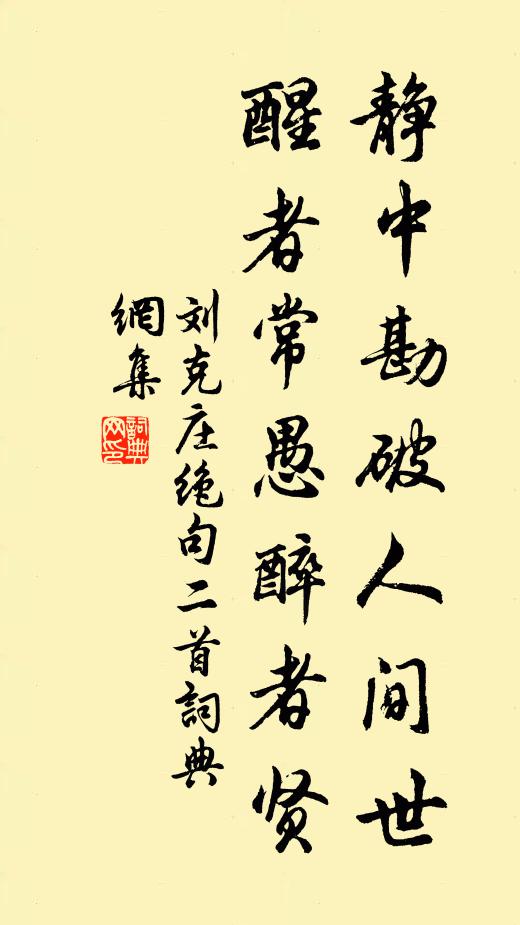 静中勘破人间世
醒者常愚醉者贤
刘克庄绝句二首詞典
網集
詞典
网印